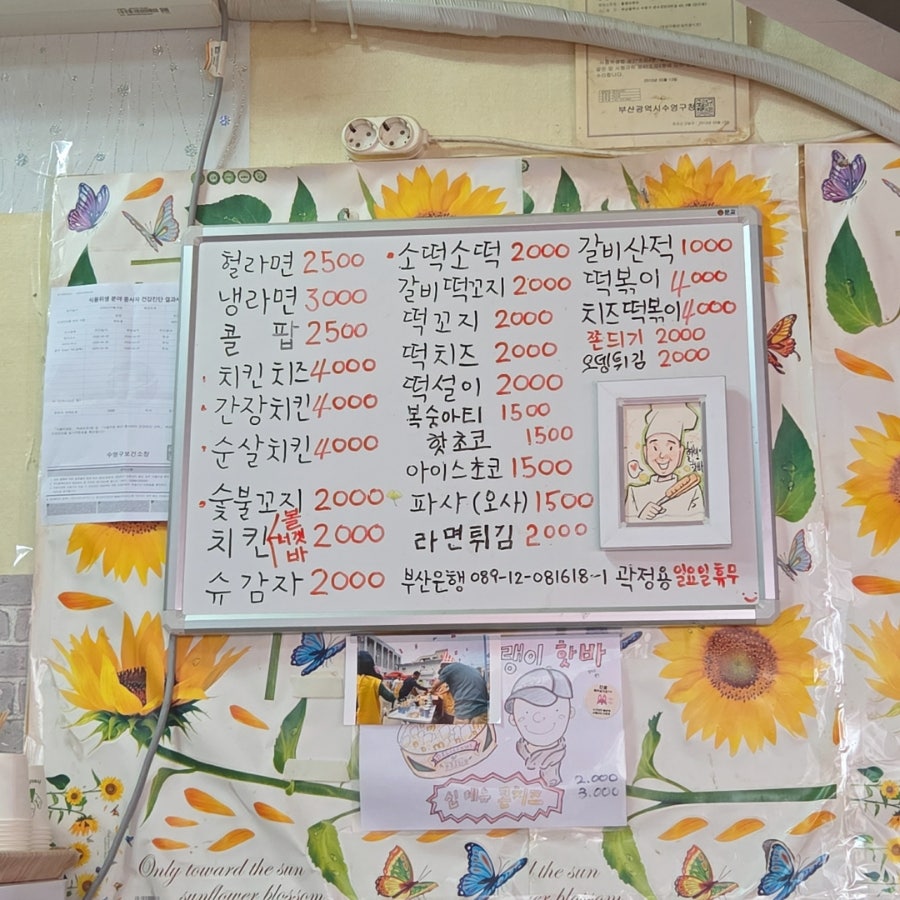 부산광역시수영구청장
식품위생 분야 종사자 건강진단 결과서
수영구보건소장
헐라면 2500
냉라면 3000
콜 팝 2500
치킨치즈 4000
간장치킨 4000
순살치킨 4000
숯불꼬지 2000
치킨 볼 너겟 바 2000
슈감자 2000
소떡소떡 2000
갈비떡꼬지 2000
떡꼬지 2000
떡치즈 2000
떡설이 2000
복숭아티 1500
핫쵸코 1500
아이스초코 1500
파사(오사) 1500
라면튀김 2000
갈비산적 1000
떡볶이 4000
치즈떡볶이 4000
쫀듸기 2000
오뎅튀김 2000
부산은행 089-12-081618-1 곽정용 일요일 휴무
랭이 핫바
신메뉴 콘치즈
2.000
3.000
Only toward the sun
sunflower blossom
the sun
sunflower blossom